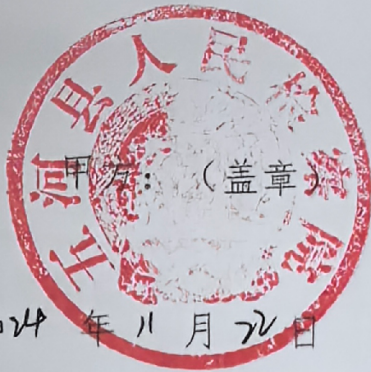 五河县人民检察院
甲方：（盖章）
024 年 11 月 22 日